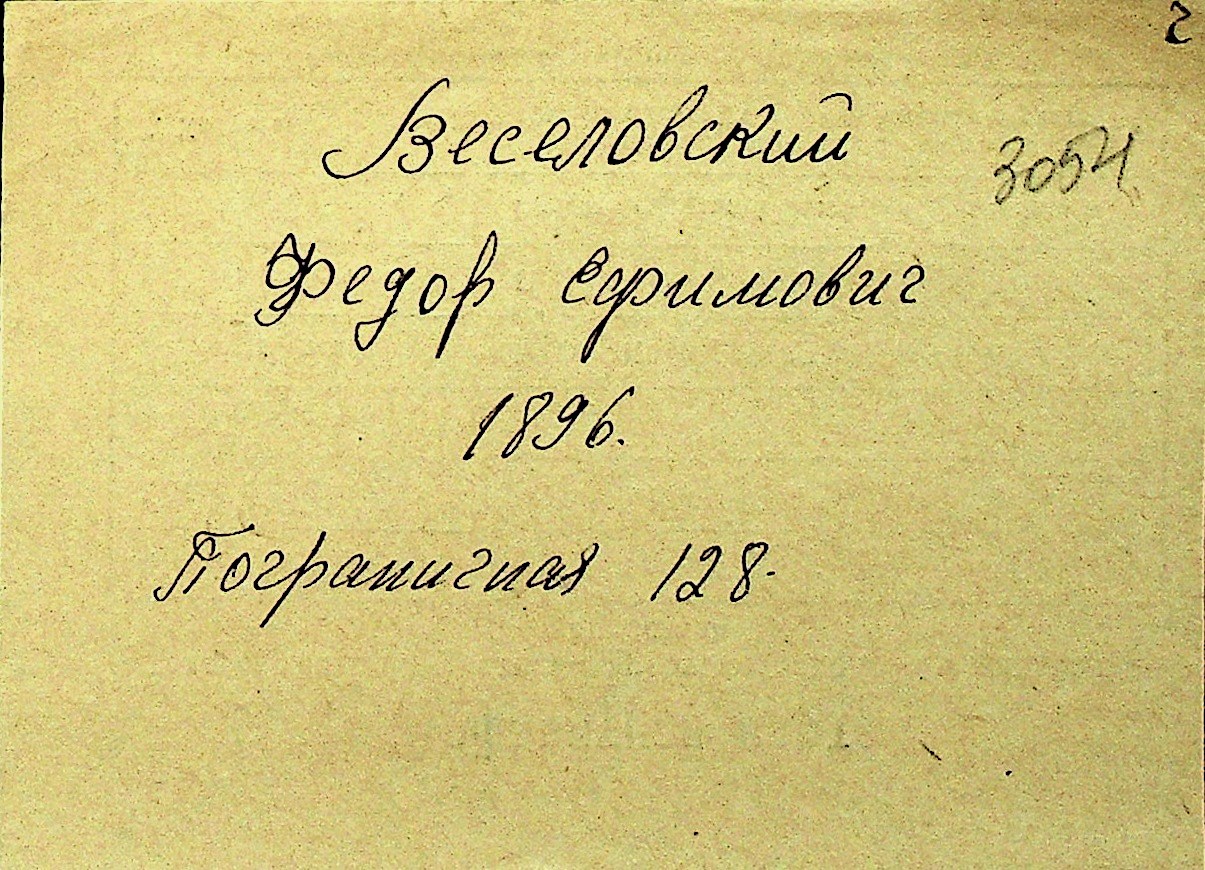 2
Веселовский
3054
Федор Ефимович
1896.
Пограничная 128.